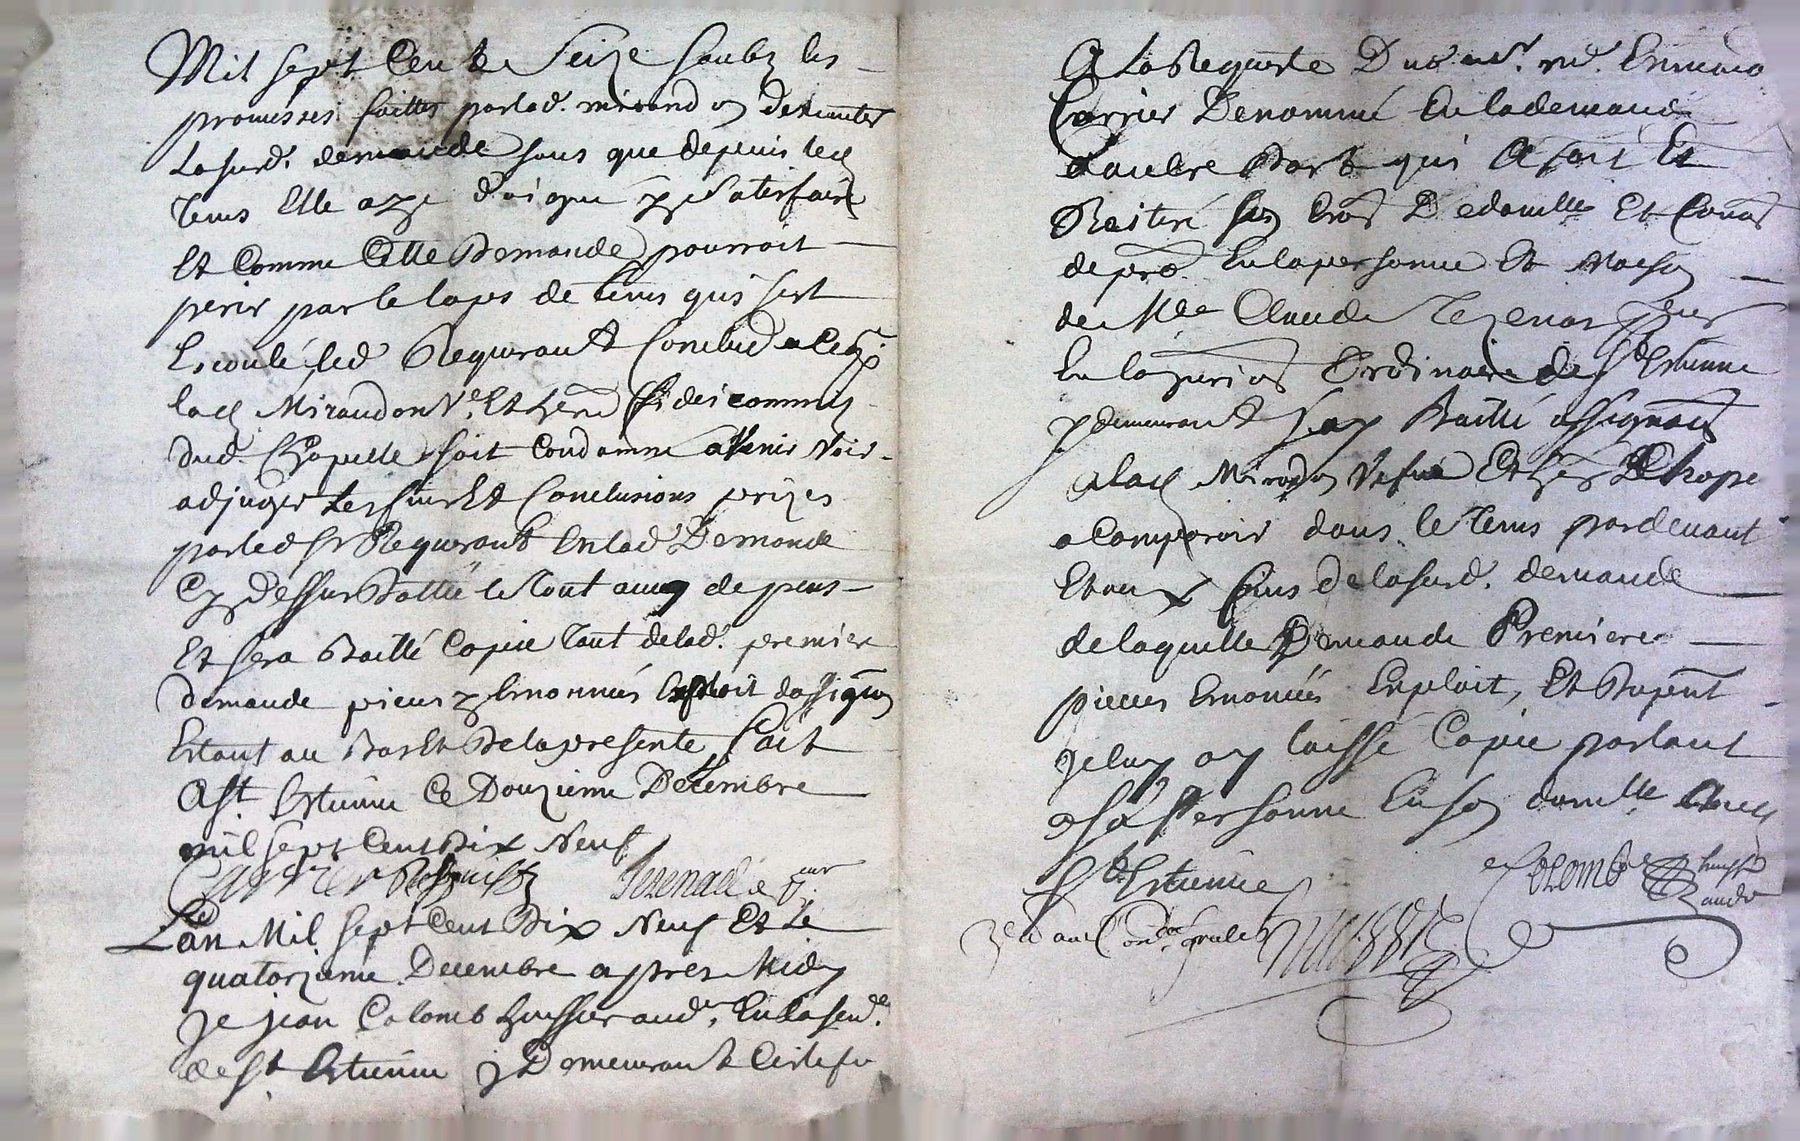 Mil sept Cent Seize soubz les
promesses faittes par lad. mirandon de
Lasusd. demande sans que depuis led
tems Elle aye daigné y satisfaire
Et Comme Cette Demande pourroit
perir par le laps de tems qui s'est
Ecoulé led Requerant Conclud a Ce que
lad Mirandon Ve. Et her. fideicommis
dud. Chapelle soit Condamné a Venir Voir
adjuger Les fins Et Conclusions prizes
par led Sr Requerant En lad Demande
Cy Dessus Datteé le tout avec depens
Et sera Baillé Copie tant de lad. premiere
demande pieces y Ennonnées Exploit dassigaon
Estant au Bas Et De la presente, fait
A St. Estienne Ce Douzieme Decembre
mil sept Cent Dix Neuf
Carrier
Lan Mil sept Cent Dix Neuf Et Le
quatorzieme Decembre apres Midy
Je jean Colomb huissier aud. En la send.
de St Estienne y Demeurant
A La Requeste Dud.
Carrier Denommé En la demande
dautre Part qui A fait Et
Reiteré son Domlle Et Conon
de pror En la personne Et Maison
de Mre Claude Tezenas pour
En la jurion Ordinaire de St Estienne
y demeurant jay Baillé assignaon
a lad Mirandon Vefve Et her De Chape
a Comparoir dans le tems pardevant
Et aux fins de la susd. demande
de laquelle Demande Premiere
pieces Enoncées Exploit, Et Present
je luy ay laissé Copie parlant
a sa Personne En son domlle Aud
St Estienne
Colomb huissr
audr